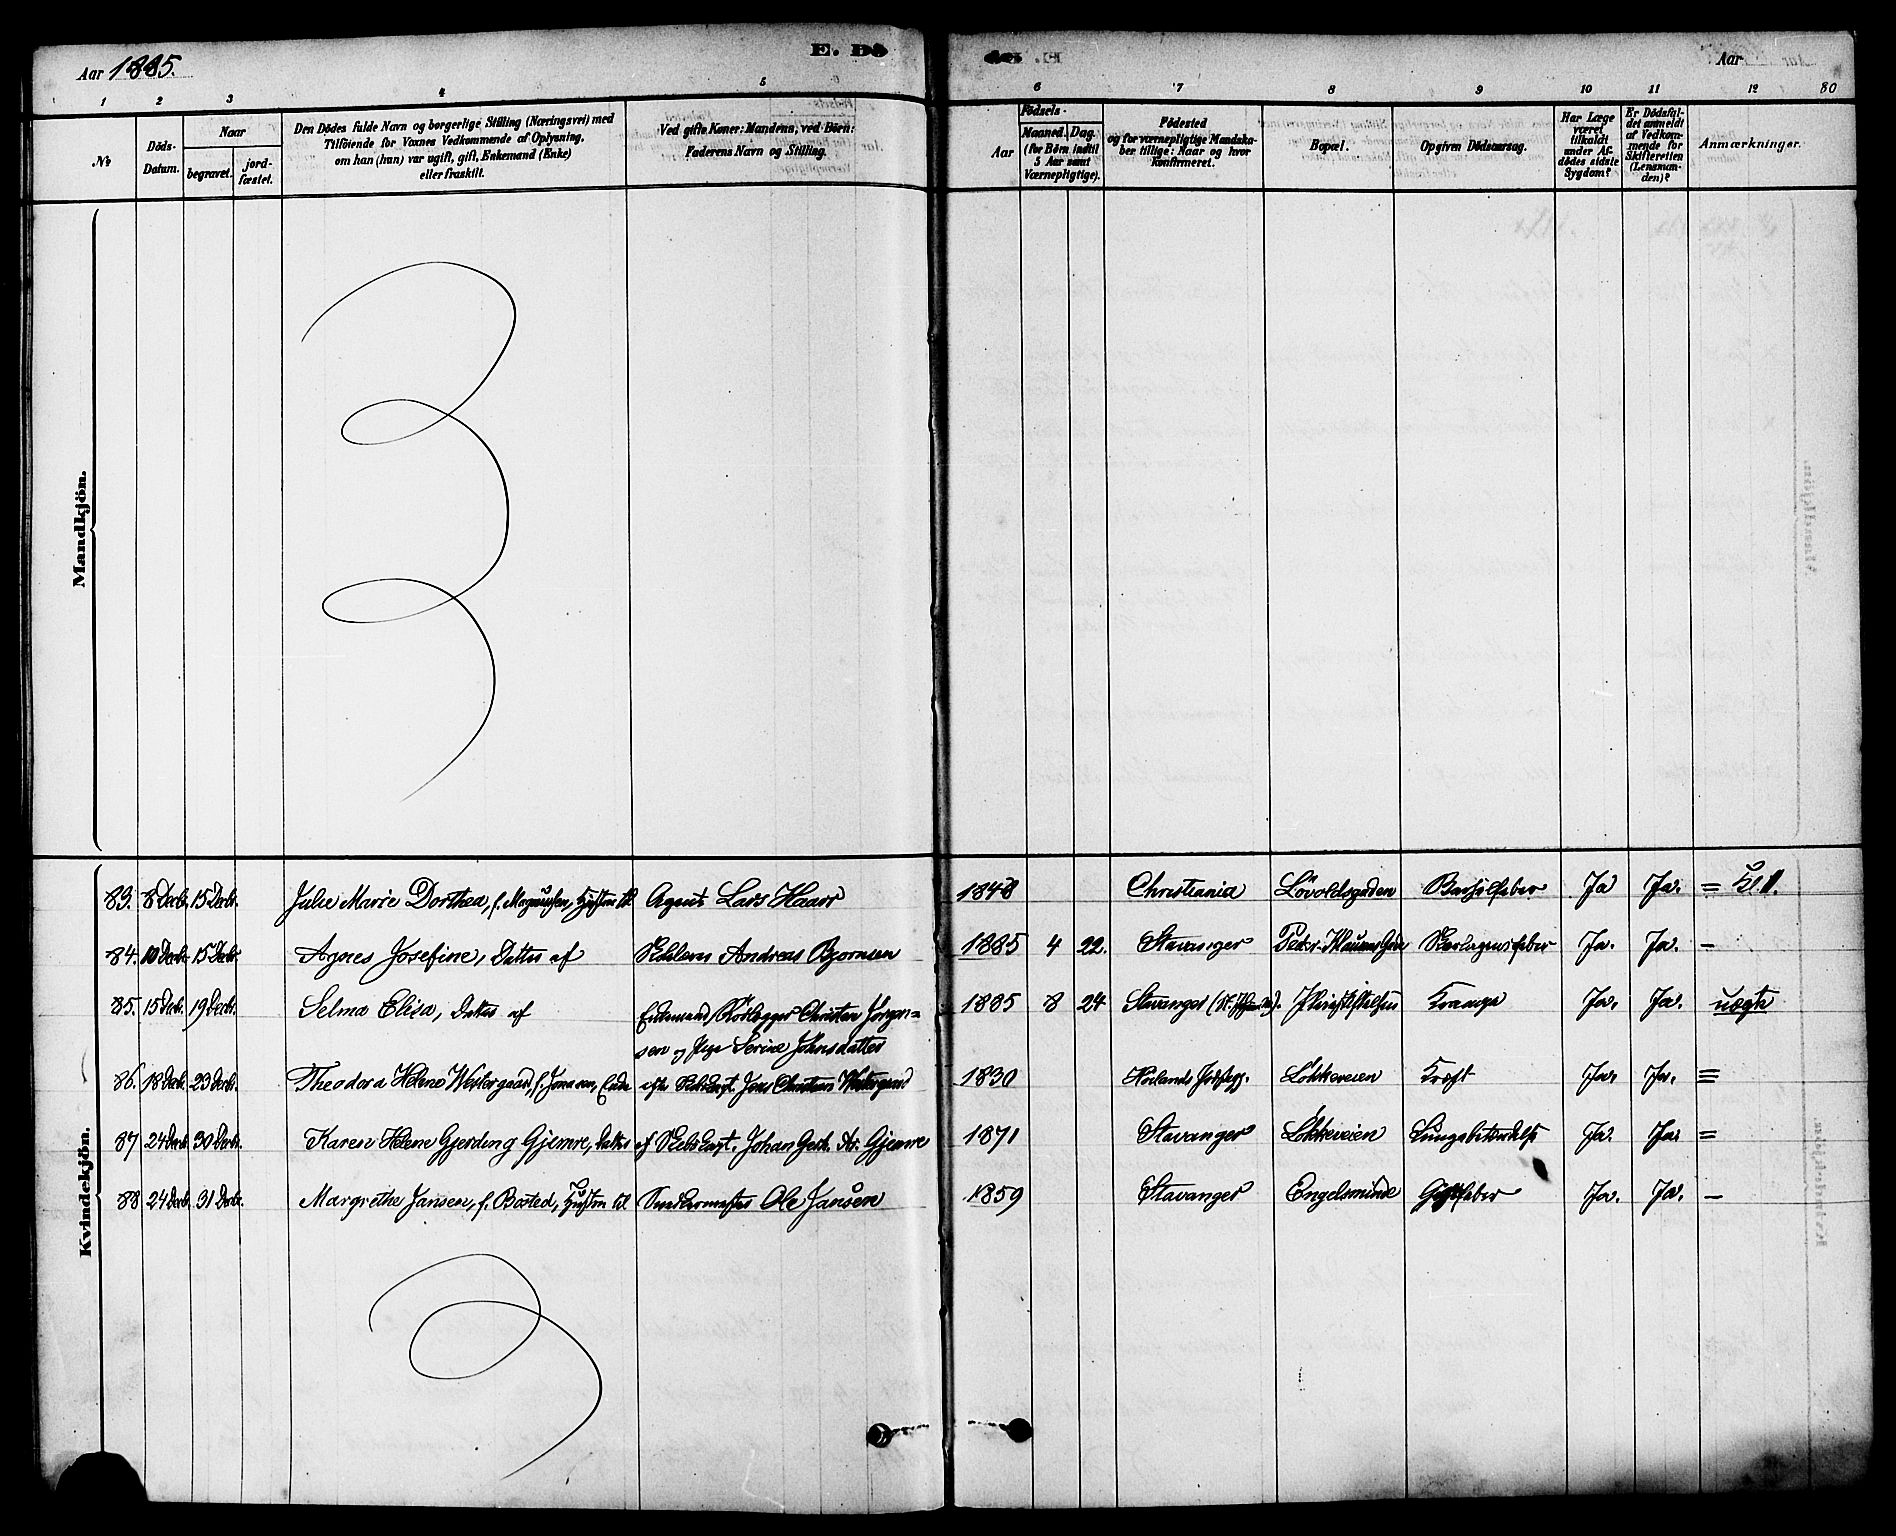 Aar 1885.
E. Dö
Aar
80
1 2 3 4 5 6 7 8 9 10 11 12
No
Döds-Datum.
Naar
begravet.
jord-fæstet.
Den Dödes fulde Navn og borgerlige Stilling (Næringsvei) med
Tilföiende for Voxnes Vedkommende af Oplysning,
om han (hun) var ugift, gift, Enkemand (Enke)
eller fraskilt.
Ved gifte Koner: Mandens, ved Börn:
Faderens Navn og Stilling.
Födsels-
Aar
Maaned. Dag.
(for Börn indtil
5 Aar samt
Værnepligtige).
Födested
og for værnepligtige Mandska-
ber tillige: Naar og hvor
konfirmeret.
Bopæl.
Opgiven Dödsaarsag.
Har Læge
været
tilkaldt
under Af-
dödes sidste
Sygdom?
Er Dödsfal-
det anmeldt
af Vedkom-
mende for
Skifteretten
(Lensman-
den)?
Anmærkninger.
Mandkjön.
Kvindekjön.
83. 8 Decb. 15 Decbr. Julie Marie Dorthea, f. Magnussen, Hustru til Agent Lars Haarr 1848 Christiania Lövoldsgaden Barselfeber Ja Ja. =
84. 10 Decb. 15 Decbr Agnes Josefine, Datter af Andreas Bjornsen 1885 4 22. Stavanger Peder Klausens Gade Skarlagensfeber Ja. Ja. –
85. 15 Decb. 19 Decbr. Selma Elisa, Datter af Enkemand Christian Jörgen=
sen og Pige Serine Johnsdatter 1885 8 24 Stavanger Krampe Ja. Ja. uægte
86. 18 Decb. 23 Decbr. Theodora Helene Westergaard, f. Jonassen, Enke efter Skibscapt. Jens Christian Westergaard 1830 Lökkeveien Kræft Ja. Ja. =
87 24 Decb. 30 Decbr. Karen Helene Gjerding Gjemre, Datter af Skibscapt. Johan Geth. Ar. Gjemre 1871 Stavanger Lökkeveien Lungebetændelse Ja. Ja. =
88 24 Decb. 31 Decbr. Margrethe Jansen, f. Basted, Hustru til Snedkermester Ole Jansen 1859 Stavanger Engelsminde Gigtfeber Ja. Ja. –